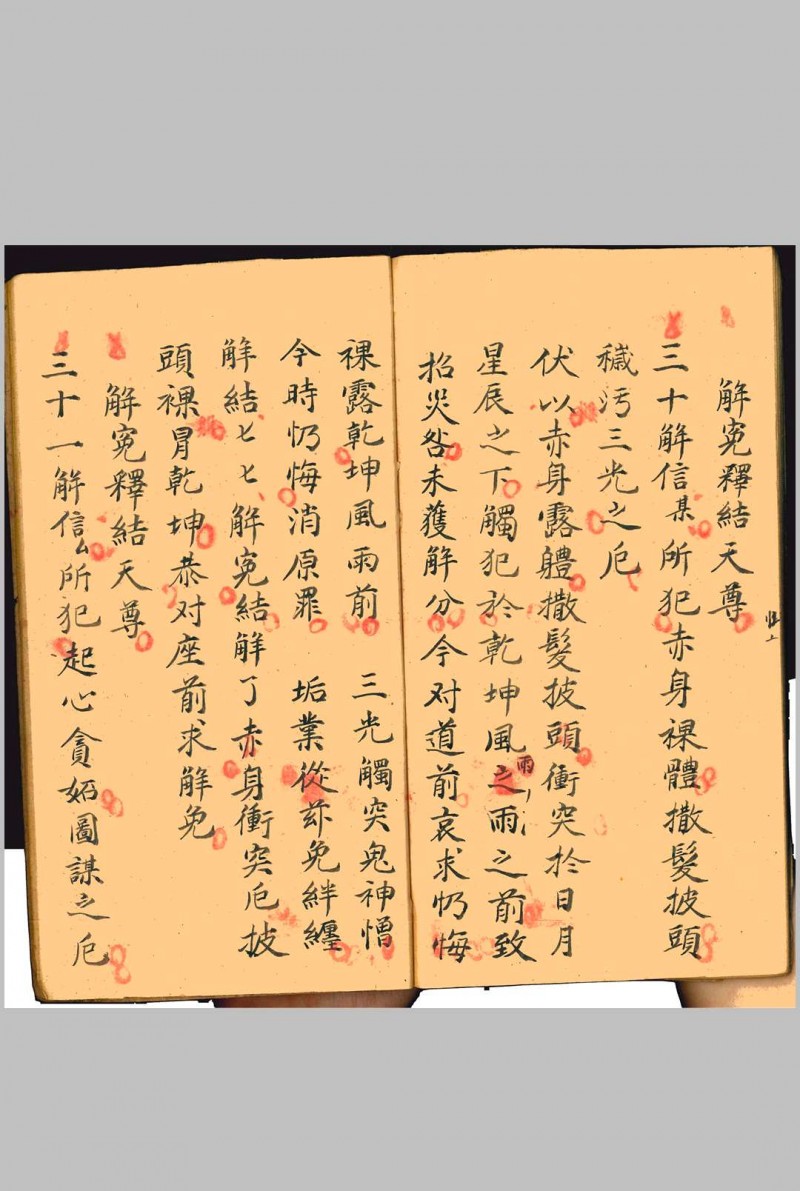 解寃釋結天尊
三十解信某所犯赤身裸體撒髮披頭
穢污三光之厄
伏以赤身露軆撒髮披頭衝突扵日月
星辰之下觸犯扵乾坤風之雨之前致
雨
招災咎未獲解分今对道前哀求忏悔
裸露乾坤風雨前 三光觸突鬼神憎
今時忏悔消原罪 垢業從茲免絆纏
解結七七解寃結解了赤身衝突厄披
頭裸冒乾坤恭对座前求解免
解寃釋結天尊
三十一解信厶所犯起心貪妬圖謀之厄